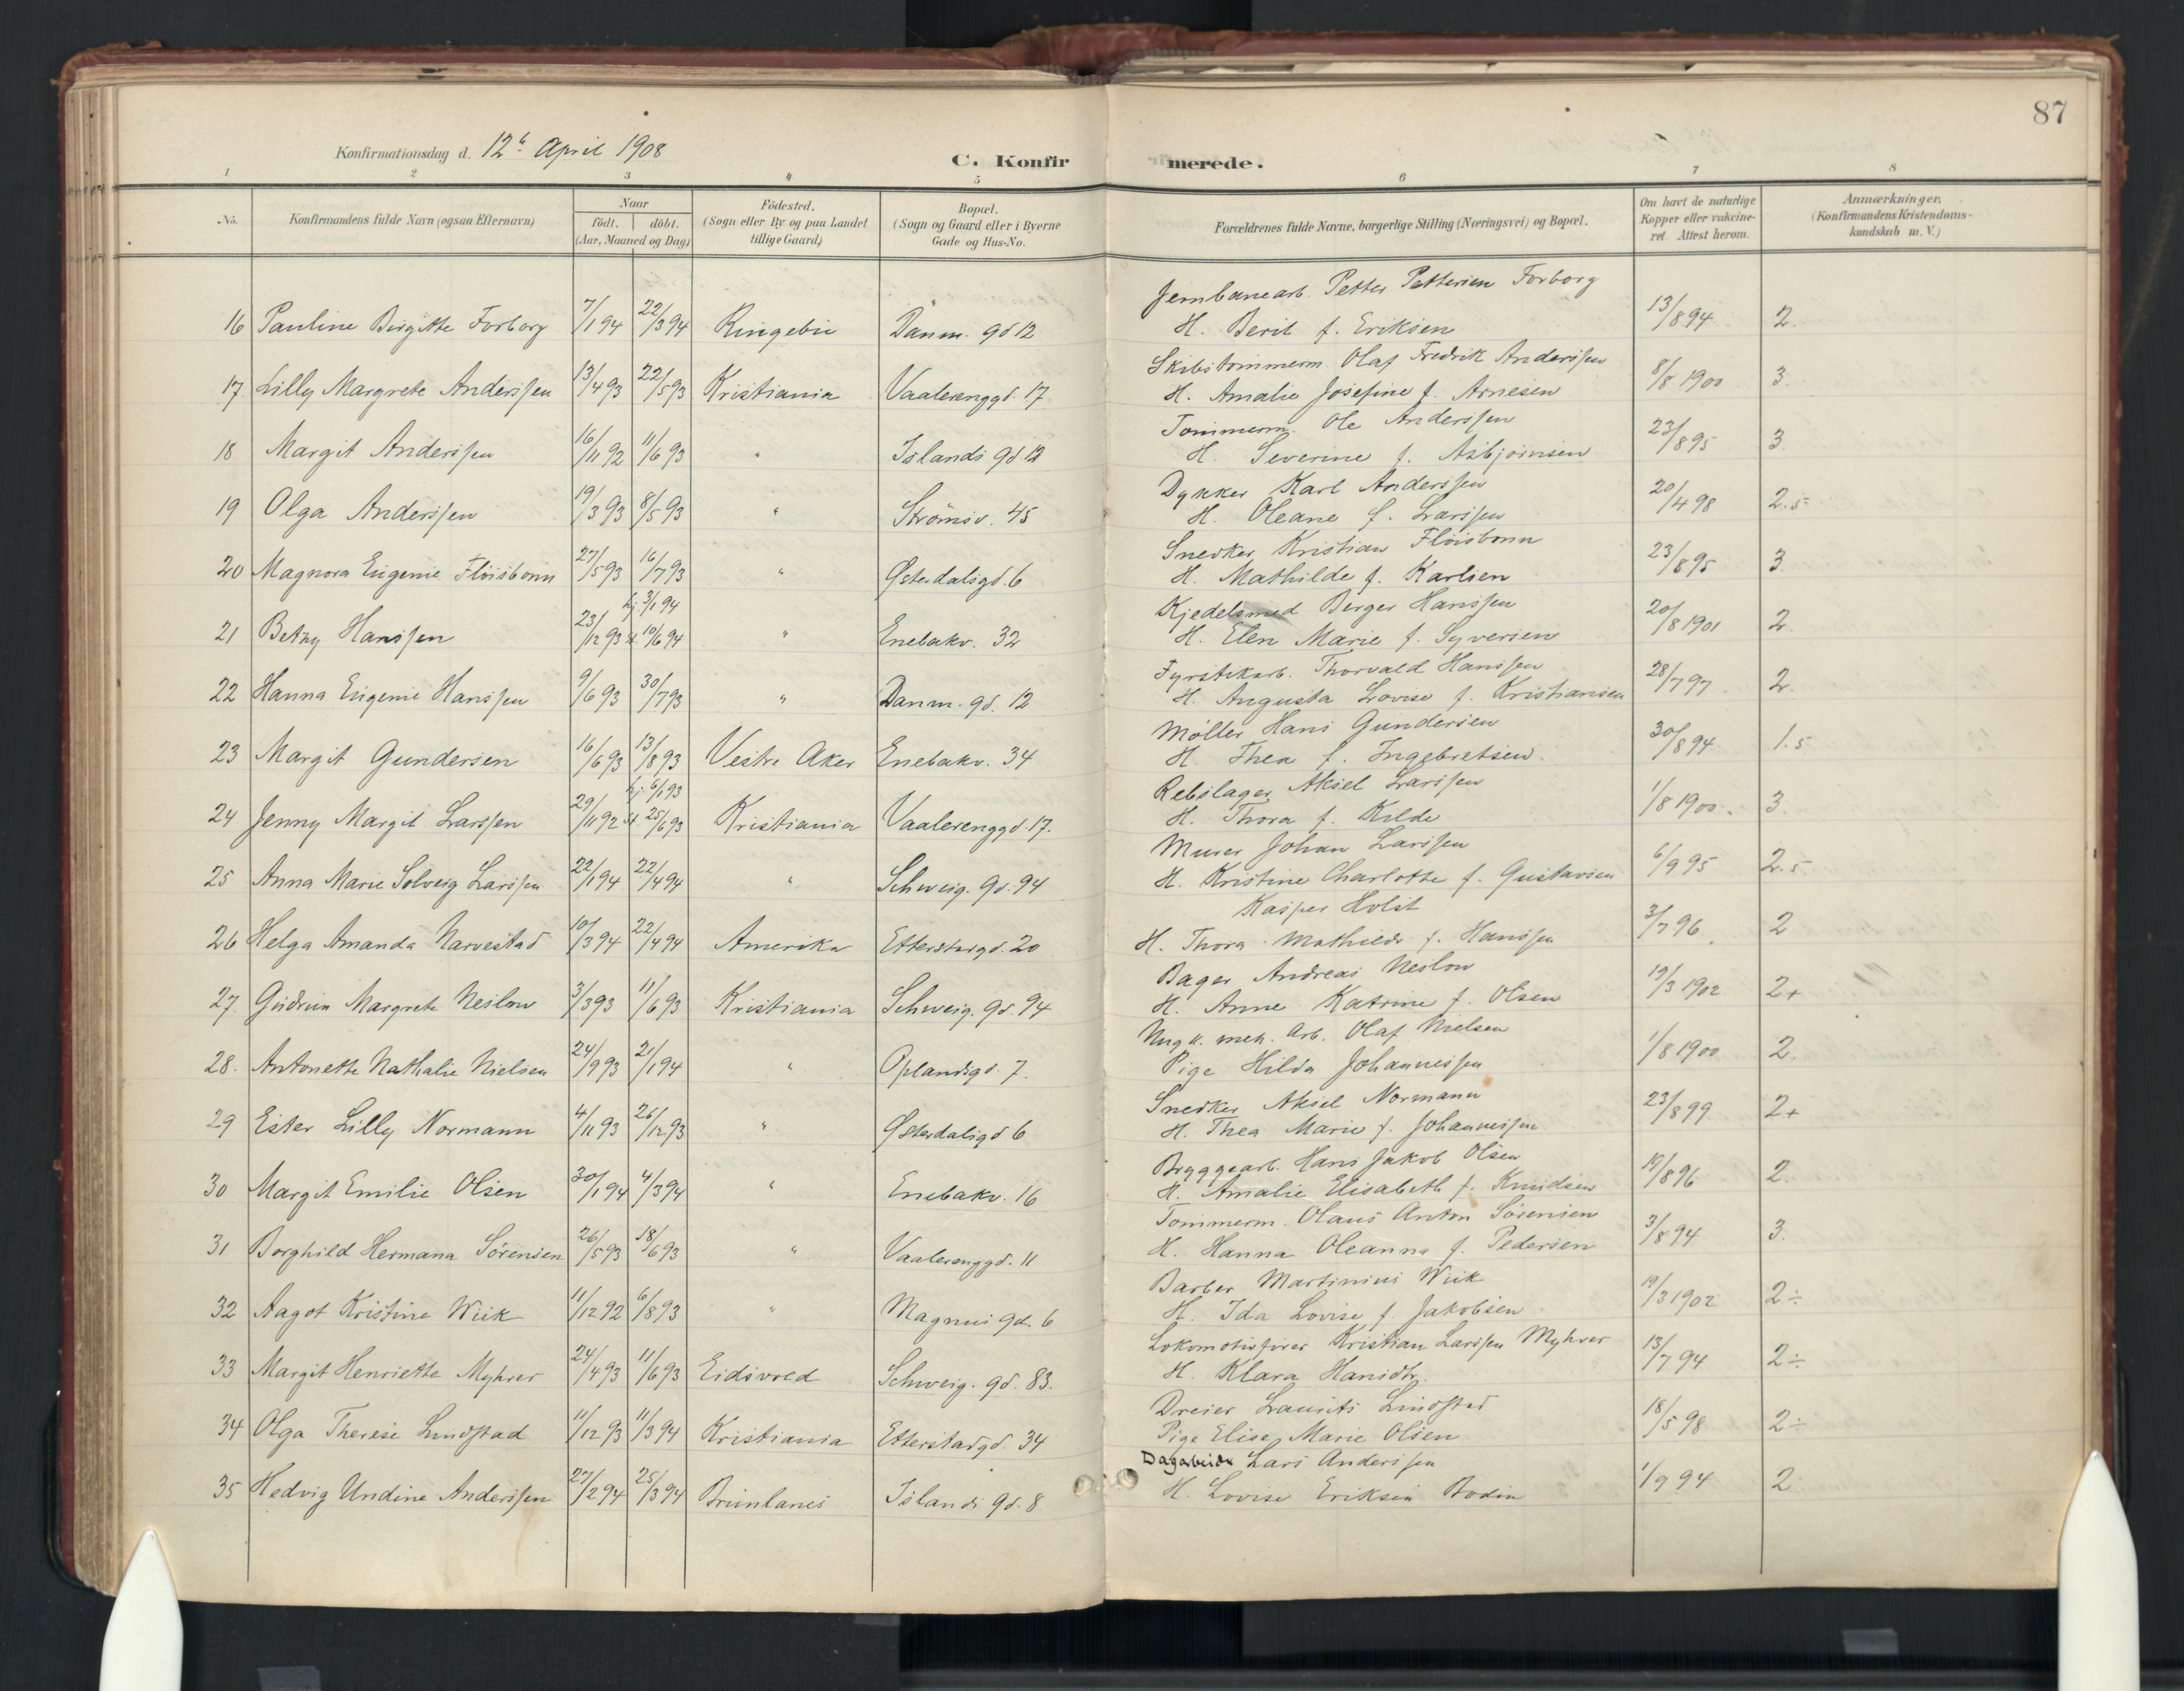 87
Konfirmationsdag d. 12te April 1908
C. Konfirmerede.
1 2 3 4 5 6 7 8
No.
Konfirmandens fulde Navn (ogsaa Efternavn)
Naar
födt. döbt.
(Aar, Maaned og Dag)
Födested.
(Sogn eller By og paa Landet
tillige Gaard)
Bopæl.
(Sogn og Gaard eller i Byerne
Gade og Hus-No.
Forældrenes fulde Navne, borgerlige Stilling (Næringsvei) og Bopæl.
Om havt de naturlige
Kopper eller vakcine-
ret. Attest herom.
Anmærkninger.
(Konfirmandens Kristendoms-
kundskab m. V.)
Jernbanearb. Petter Pettersen Forborg
16 Pauline Birgitte Forborg 7/1 94 22/3 94 Ringebu Danm. gd 12 H. Berit f. Eriksen 13/8 94 2.
Skibstömmerm. Olaf Fredrik Anderssen
17. Lilly Margrete Anderssen 13/4 93 22/5 93 Kristiania Vaalerenggd. 17 H. Amalie Josefine f. Arnesen 8/8 1900 3.
Tömmerm. Ole Anderssen
18 Margit Anderssen 16/11 92 11/6 93 " Islands gd 12 H. Severine f. Asbjörnsen 23/8 95 3.
Dykker Karl Anderssen
19 Olga Anderssen 19/3 93 8/5 93 " Strömsv. 45 H. Oleane f. Larssen 20/4 98 2.5
Snedker Kristian Flöisbonn
20 Magnora Eugenie Flöisbonn 27/5 93 16/7 93 " Østerdalsgd. 6 H. Mathilde f. Karlsen 23/8 95 3.
hj. 3/1 94
Kjedelsmed Birger Hanssen
21 Betzy Hanssen 23/12 93 st. 10/6 94 " Enebakv. 32 H. Elen Marie f. Syversen 20/8 1901 2.
Fyrstikarb. Thorvald Hanssen
22 Hanna Eugenie Hanssen 9/6 93 30/7 93 " Danm. gd. 12 H. Augusta Lovise f. Kristiansen 28/7 97 2.
Møller Hans Gundersen
23 Margit Gundersen 16/6 93 13/8 93 Vestre Aker Enebakv. 34 H. Thea f. Ingebretsen 30/8 94 1.5
hj. 6/1 93
Rebslager Aksel Larssen
24 Jenny Margit Larssen 29/11 92 st. 25/6 93 Kristiania Vaalerenggd. 17. H. Thora f. Kilde 1/8 1900. 3.
Murer Johan Larssen
25 Anna Marie Solveig Larssen 22/1 94 22/4 94 " Schweig. gd. 94 H. Kristine Charlotte f. Gustavsen 6/9 95 2.5
Kasper Holst
26 Helga Amanda Narvestad 10/3 94 22/4 94 Amerika Etterstadgd. 20 H. Thora Mathilde f. Hanssen 3/7 96 2
Bager Andreas Neslow
27. Gudrun Margrete Neslow 3/3 93 11/6 93 Kristiania Schweig. gd. 94 H. Anne Katrine f. Olsen 19/3 1902 2+
Ungk. mek. Arb. Olaf Nielsen
28. Antonette Nathalie Nielsen 24/9 93 21/1 94 " Oplandsgd. 7. Pige Hilda Johannessen 1/8 1900 2.
Snedker Aksel Normann
29 Ester Lilly Normann 4/11 93 26/12 93 " Østerdalsgd 6 H. Thea Marie f. Johannessen 23/8 99 2+
Bryggearb. Hans Jakob Olsen
30 Margit Emilie Olsen 30/1 94 4/3 94 " Enebakv. 16 H. Amalie Elisabeth f. Knudsen 19/8 96 2.
Tömmerm. Olaus Anton Sörensen
31 Borghild Hermana Sörensen 26/5 93 18/6 93 " Vaalerenggd. 11 H. Hanna Oleanna f. Pedersen 3/8 94 3.
Barber Martinius Wiik
32 Aagot Kristine Wiik 11/12 92 6/8 93 " Magnus gd. 6 H. Ida Lovise f. Jakobsen 19/3 1902 2÷
Lokomotivförer Kristian Larssen Myhrer
33 Margit Henriette Myhrer 24/4 93 11/6 93 Eidsvold Schweig. gd. 83. H. Klara Hansdtr. 13/7 94 2÷
Dreier Laurits Lindstad
34 Olga Therese Lindstad 11/12 93 11/3 94 Kristiania Etterstadgd. 34 Pige Elise Marie Olsen 18/5 98 2÷
Dagarbeider Lars Anderssen
35 Hedvig Undine Anderssen 27/2 94 25/3 94 Brunlanes Islands gd. 8 H. Lovise Eriksen Bodin 1/9 94 2